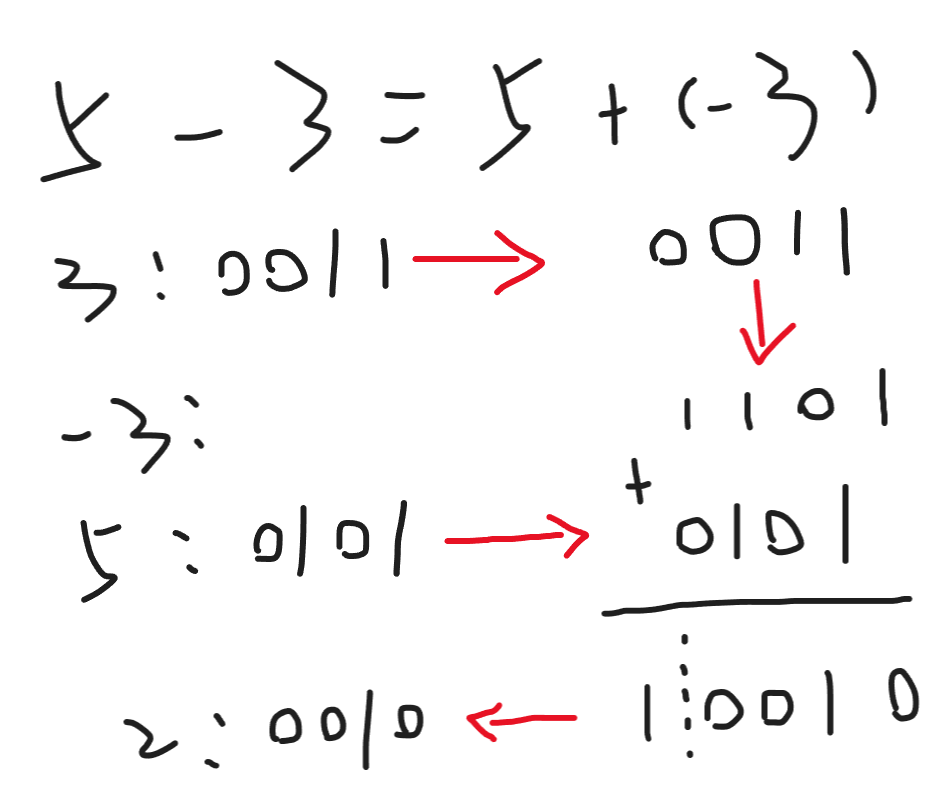 5 - 3 = 5 + (-3)
3 : 0011 → 0011
↓
-3 : 1101
+
5 : 0101 → 0101
2 : 0010 ← 1 0010